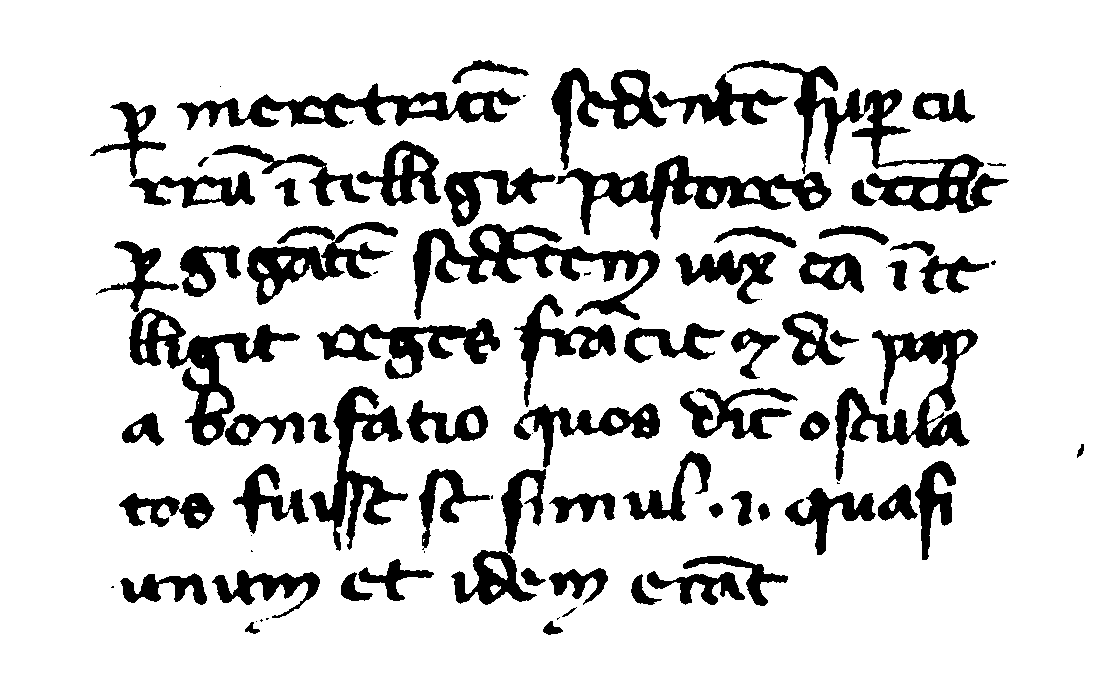 ꝑ meretricē sedentē suꝑ cu
rrū ītelligit pastores eccl̄ie
ꝑ gigātē sedētem iux̄ eā īte
lligit reges frācie ⁊ de pap
a bonifatio quos dic̄ oscula
tos fuisse se simul .i. quasi
unum et idem erāt